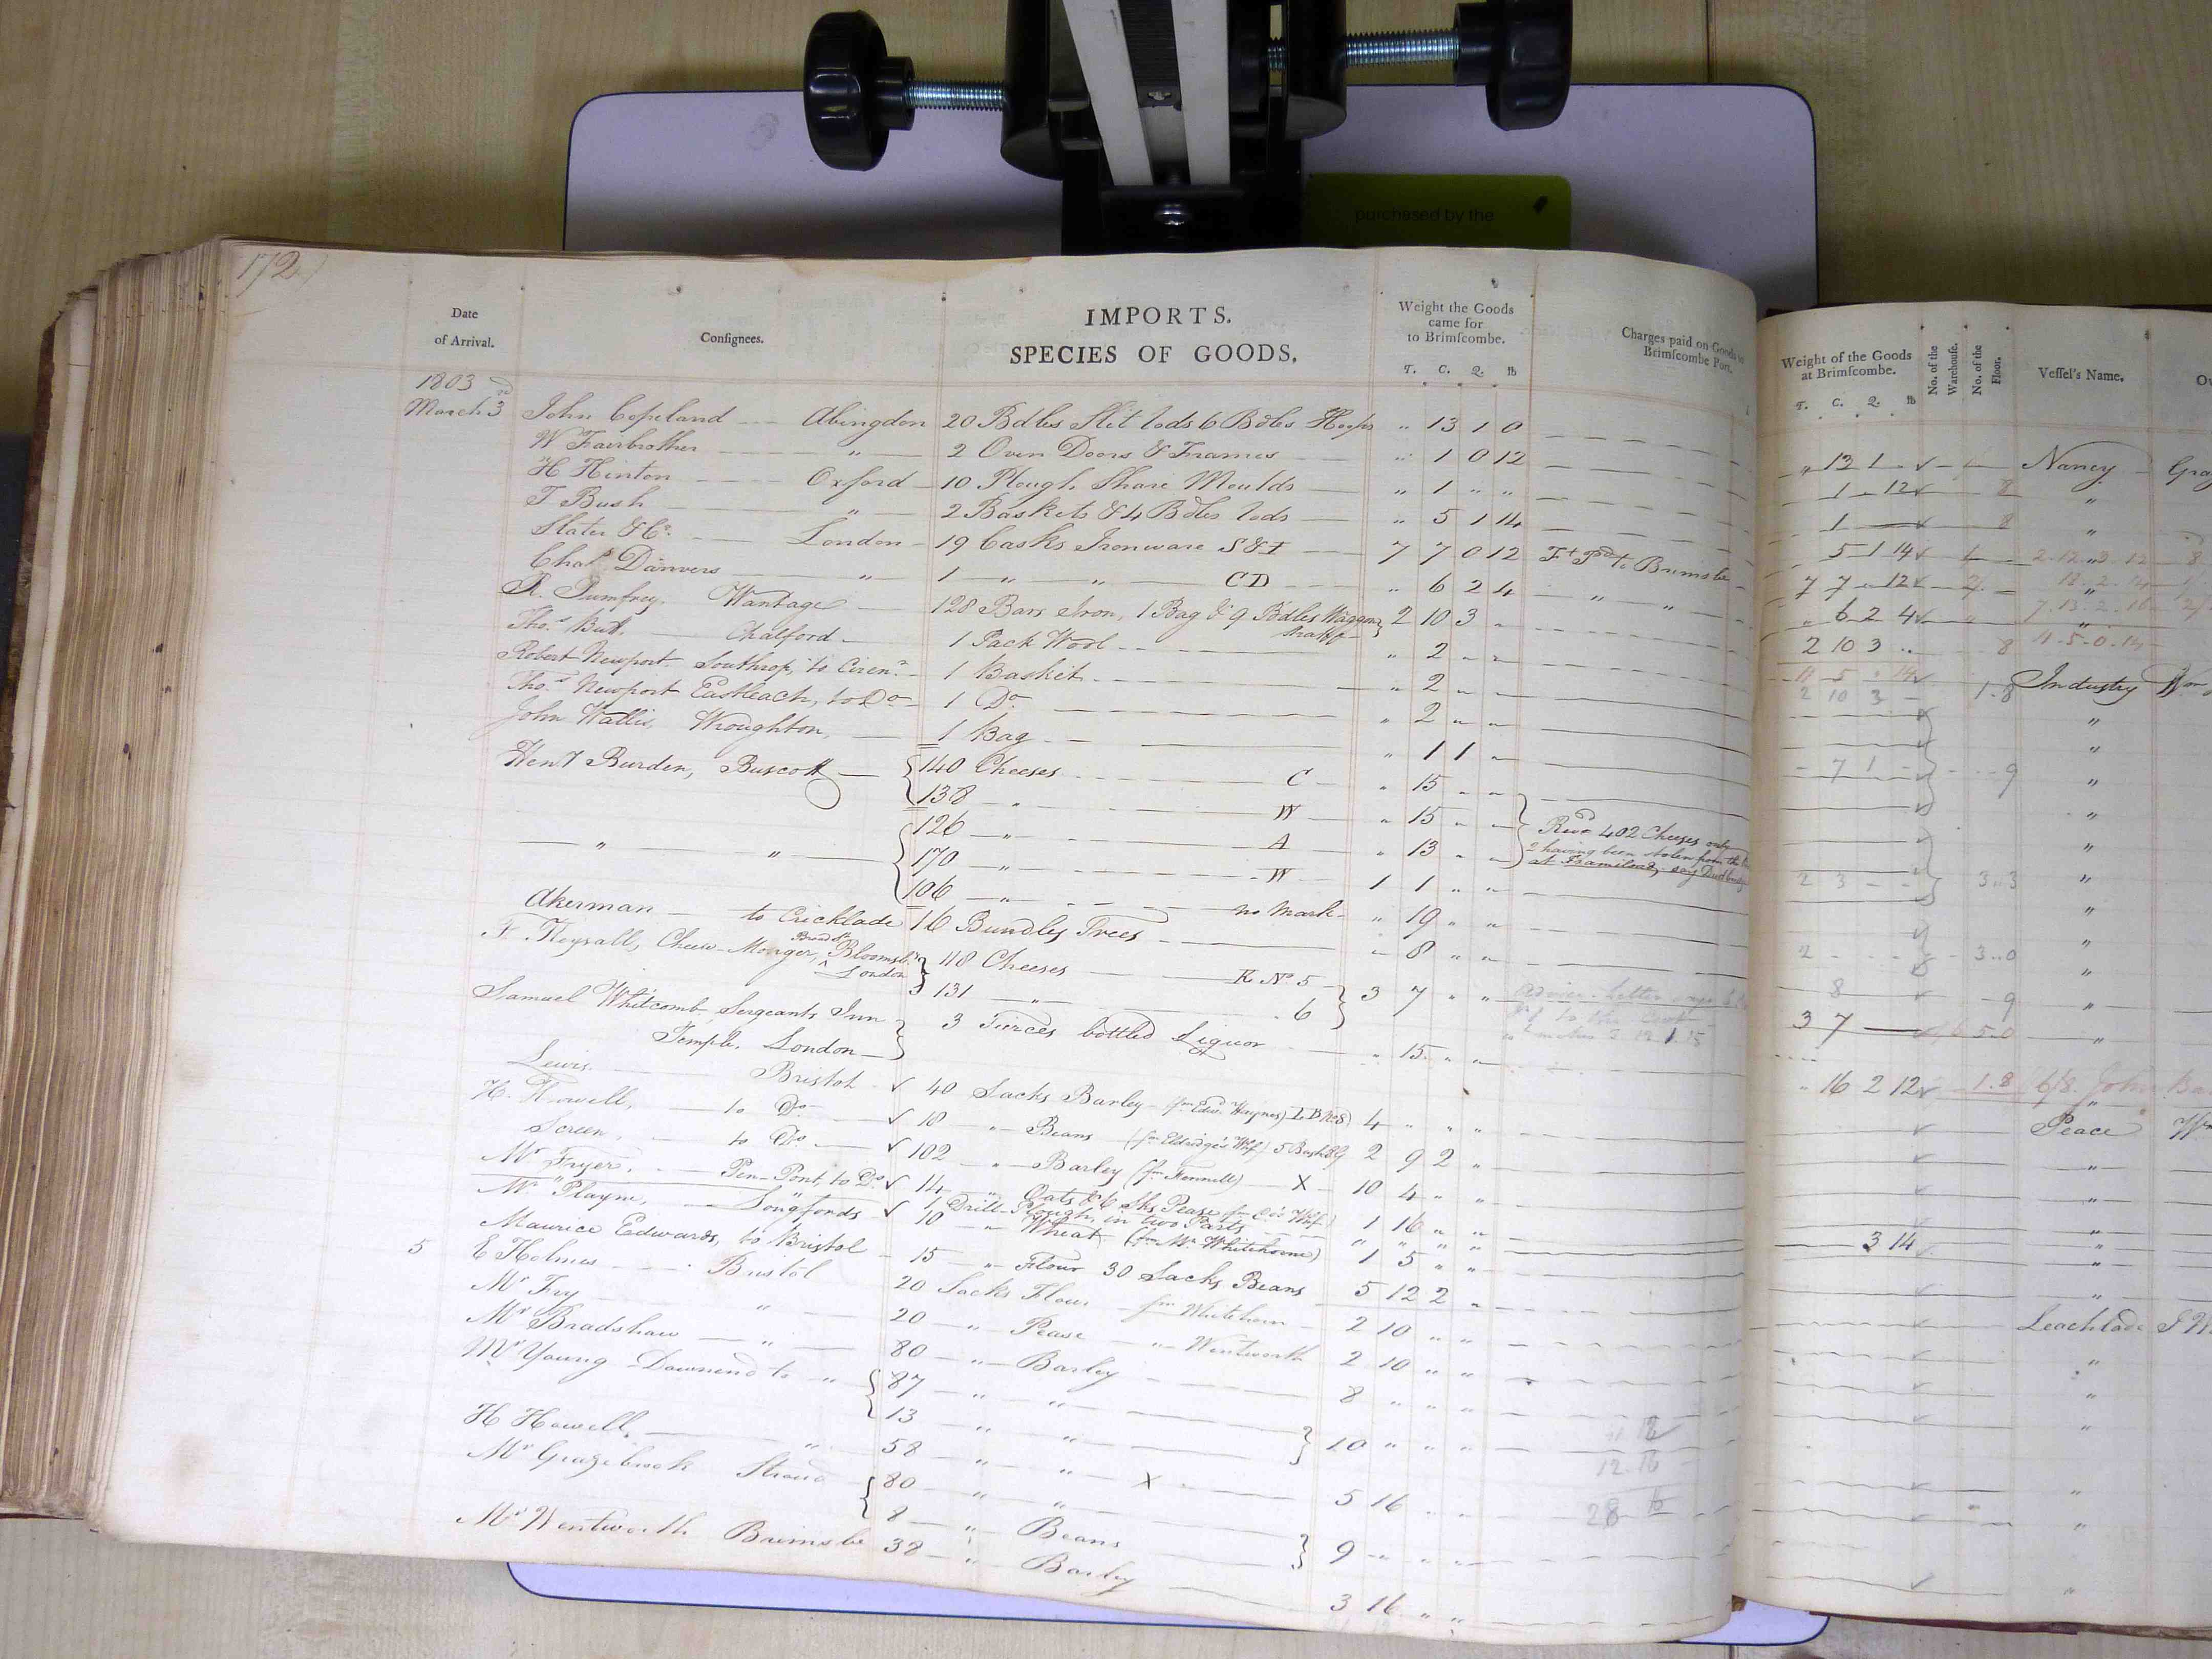 purchased by the
172
Date of Arrival.
Consignees.
IMPORTS.
SPECIES OF GOODS.
Weight the Goods came for to Brimscombe.
T. C. Q. lb
Charges paid on Goods to Brimscombe Port.
Weight of the Goods at Brimscombe.
T. C. Q. lb
No. of the Warehouse.
No. of the Floor.
Vessel's Name.
1803
March 3rd John Copeland Abingdon 20 Bdles Slit rods 6 Bdles Hoops " 13 1 0
W Fairbrother " 2 Oven Doors & Frames " 1 0 12
H Hinton Oxford 10 Plough Share Moulds " 1 " "
T Bush " 2 Baskets & 4 Bdles rods " 5 1 14
Slater & Co. London 19 Casks Ironware S & I 7 7 0 12 Ft Pd to Brimsbe
Chas. Danvers " 1 " " CD " 6 2 4 " "
R. Pumfrey, Wantage 128 Bars Iron, 1 Bag & 9 Bdles Waggon 2 10 3 "
Thos. But, Chalford 1 Pack Wool " 2 " "
Robert Newport Southrop, to Ciren. 1 Basket " 2 " "
Thos. Newport Eastleach, to Do 1 Do. " 2 " "
John Wallis, Wroughton, 1 Bag " 1 1 "
Heny Burden, Buscott 140 Cheeses C " 15 " "
138 " W " 15 " "
" " 126 " A " 13 " "
Recd 402 Cheeses only
2 having been stolen from the
at Framiload, say Dudbridge
170 " W 1 1 " "
106 " no Mark " 19 " "
Akerman to Cricklade 16 Bundles Trees " 8 " "
F. Heysall, Cheese-Monger, Broad St Bloomsby London 118 Cheeses K No 5 3 7 " "
131 " 6
Samuel Whitcomb, Sergeants Inn 3 Tierces bottled Liquor " 15 " "
Temple, London
Lewis, Bristol 40 Sacks Barley 4 " " "
H. Howell, to Do 18 " Beans 2 9 2 "
Screen, to Do 102 " Barley X 10 4 " "
Mr Fryer, Pen-Pont, to Do 14 " Oats & 6 Sks Pease 1 16 " "
1 Drill-Plough, in two Parts " " " "
Mr Playne, Longfords 10 " Wheat (fm Mr Whitehorne) 1 5 " "
Maurice Edwards, to Bristol 15 " Flour 30 Sacks Beans 5 12 2 "
5 E Holmes Bristol 20 Sacks Flour fm Whitehorn 2 10 " "
Mr Fry " 20 " Pease " Wentworth 2 10 " "
Mr Bradshaw " 80 " Barley 8 " " "
Mr Young Downend to " 87 " " 10 " " "
13 " "
H Howell, " 58 " " X 5 16 " "
Mr Grazebrook Stroud 80 " " 9 " " "
8 " Beans
Mr Wentworth Brimsbe 38 " Barley 3 16 " "
12 16
" 13 1 Nancy
1 " 12 8 "
1 8 "
5 1 14 "
7 7 " 12 "
" 6 2 4 "
2 10 3 " 8
2 10 3 1.8 Industry
" 7 1 " 9
2 3 " " 3..3
2 3..0
8 9
3 7
" 16 2 12 1.8 John
Peace
3 14
Leachlade